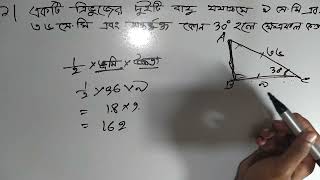 একটি ত্রিভুজের দুইটি বাহু যথাক্রমে ৯ সে.মি এবং
৩৬ সে.মি এবং অন্তর্ভুক্ত কোন 30° হলে ক্ষেত্রফল কত
A
৩৬
30°
B
৯
C
½ × ভূমি × উচ্চতা
½ × 36 × ৯
= 18 × 9
= 162